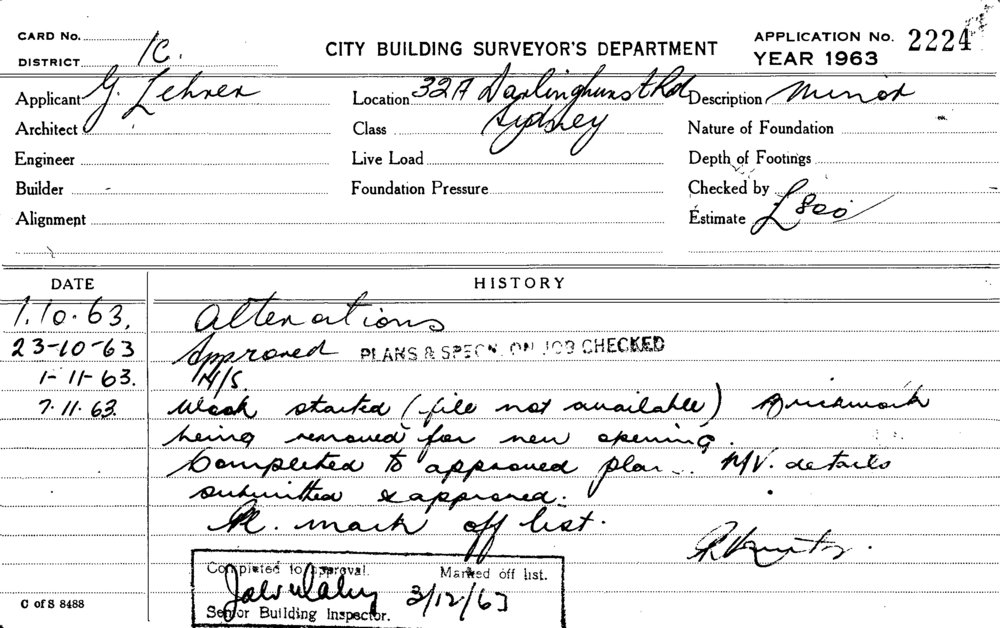 CARD No.
DISTRICT 1C.
CITY BUILDING SURVEYOR'S DEPARTMENT
APPLICATION No. 2224
YEAR 1963
Applicant G. Lehrer
Location 32A Darlinghurst Rd
Sydney
Description Minor
Architect
Class
Nature of Foundation
Engineer
Live Load
Depth of Footings
Builder -
Foundation Pressure
Checked by
Alignment
Estimate £800
DATE HISTORY
1.10.63. Alterations
23-10-63 Approved PLANS & SPECN. ON JOB CHECKED
1-11-63. N/S.
7.11.63. Work started (file not available) Brickwork
being removed for new opening.
Completed to approved plan. M/V. details
submitted & approved.
Pl. mark off list.
Completed to approval. Marked off list.
3/12/63
Senior Building Inspector.
C of S 8488